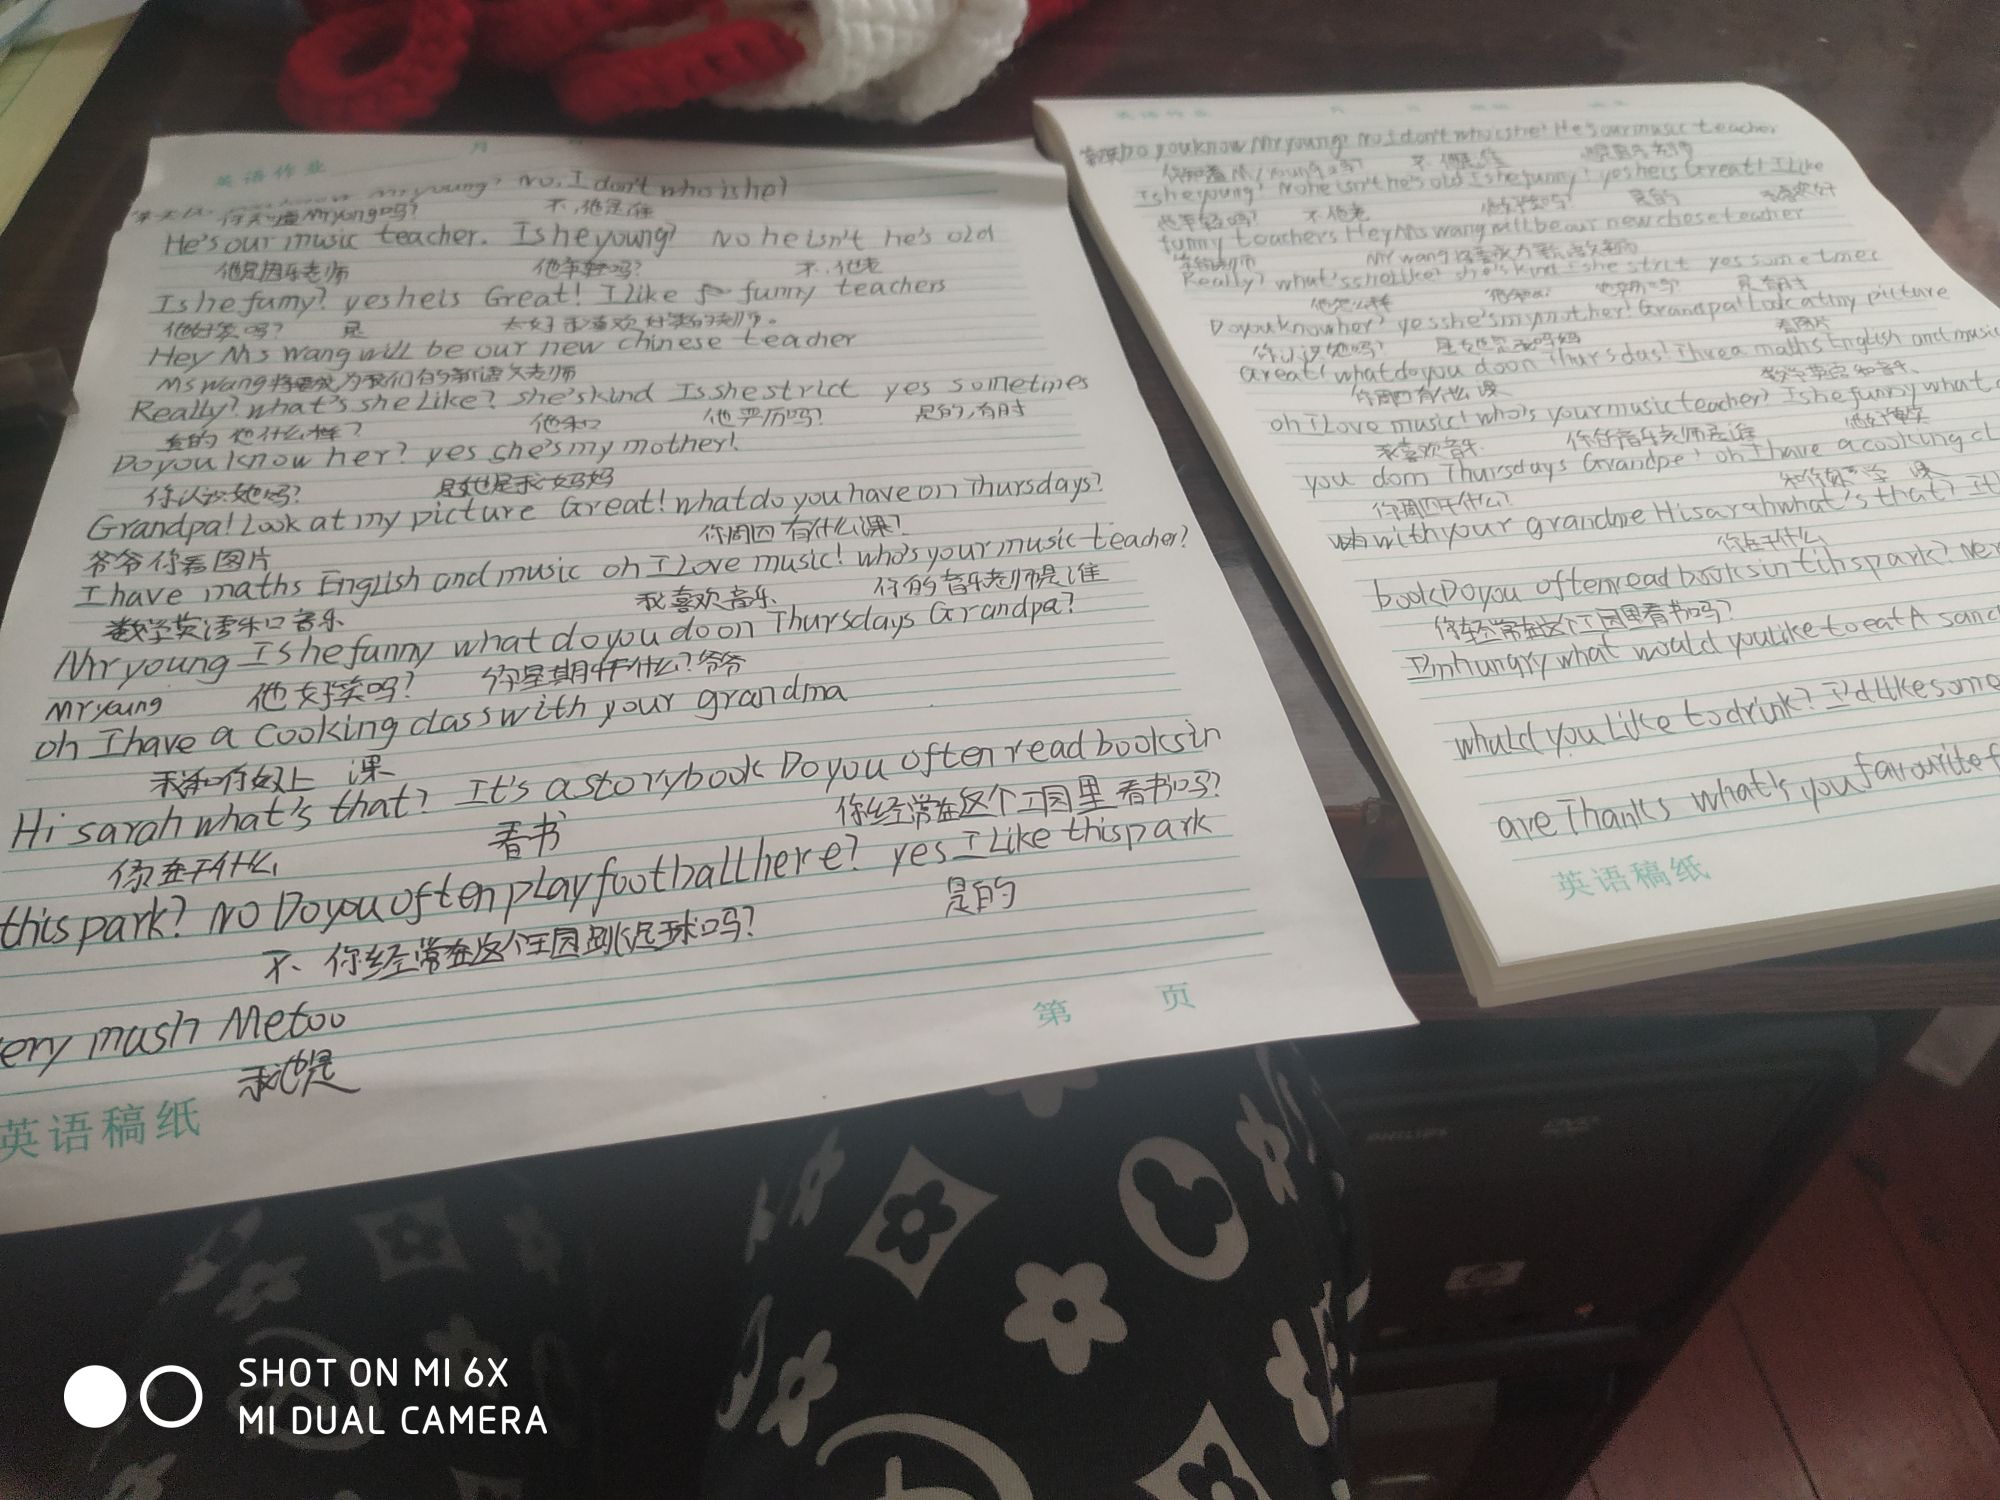 英语作业 月
Mr young? No, I don't who is he?
你知道Mr young吗? 不,他是谁
He's our music teacher. Is he young? No he isn't he's old
他是因乐老师 他年轻吗? 不,他老
Is he funny? yes he is Great! I like funny teachers
他好笑吗? 是 太好 我喜欢 好笑的老师。
Hey Ms Wang will be our new chinese teacher
Ms wang将要成为我们的新语文老师
Really? what's she Like? she's kind Is she strict yes sometimes
真的 他什么样? 他和 他严历吗? 是的,有时
Do you know her? yes she's my mother!
你认识她吗? 是她是我妈妈
Grandpa! Look at my picture Great! what do you have on Thursdays?
爷爷你看图片 你周四有什么课?
I have maths English and music oh I Love music! who's your music teacher?
数学英语和音乐 我喜欢音乐 你的音乐老师是谁
Mr young Is he funny what do you do on Thursdays Grandpa?
Mr young 他好笑吗? 你星期四干什么?爷爷
oh I have a cooking class with your grandma
我和你奶上 课
Hi sarah what's that? It's a storybook Do you often read books in
你在干什么 看书 你经常在这个工园里看书吗?
this park? NO Do you often play football here? yes I Like this park
不、你经常在这个工园踢足球吗? 是的
ery mush Me too
我也是
英语稿纸
第 页
Do you know Mr young? No I don't who is he? He's our music teacher
你知道Mr young吗? 不 他是谁
Is he young? No he isn't he's old Is he funny? yes he is Great! I Like
他年轻吗? 不他老 他好笑吗? 是的
funny teachers Hey Ms wang will be our new chese teacher
Really? what's she Like? she's kind Is she strict yes sometimes
他怎么样 是 有时
Do you know her? yes she's my mother! Grandpa! Look at my picture
你认识她吗? 是她是我妈妈 看图片
Great! what do you do on Thursdas! I have a maths English and music
你周四有什么课 数学英语和音乐
oh I Love music! who's your music teacher? Is he funny what
我喜欢音乐 你的音乐老师是谁 他好笑
you dom Thursdays Grandpe! oh I have a cooking cl
你周四干什么? 课
with your grandme Hi sarah what's that? It
你在干什么
book Do you often read books in tihs park? Ne
你经常在这个工园里看书吗?
I'm hungry what would you like to eat A sand
whuld you Like to drink? I'd Like some
are Thanks what's you favourite f
英语稿纸
SHOT ON MI 6X
MI DUAL CAMERA